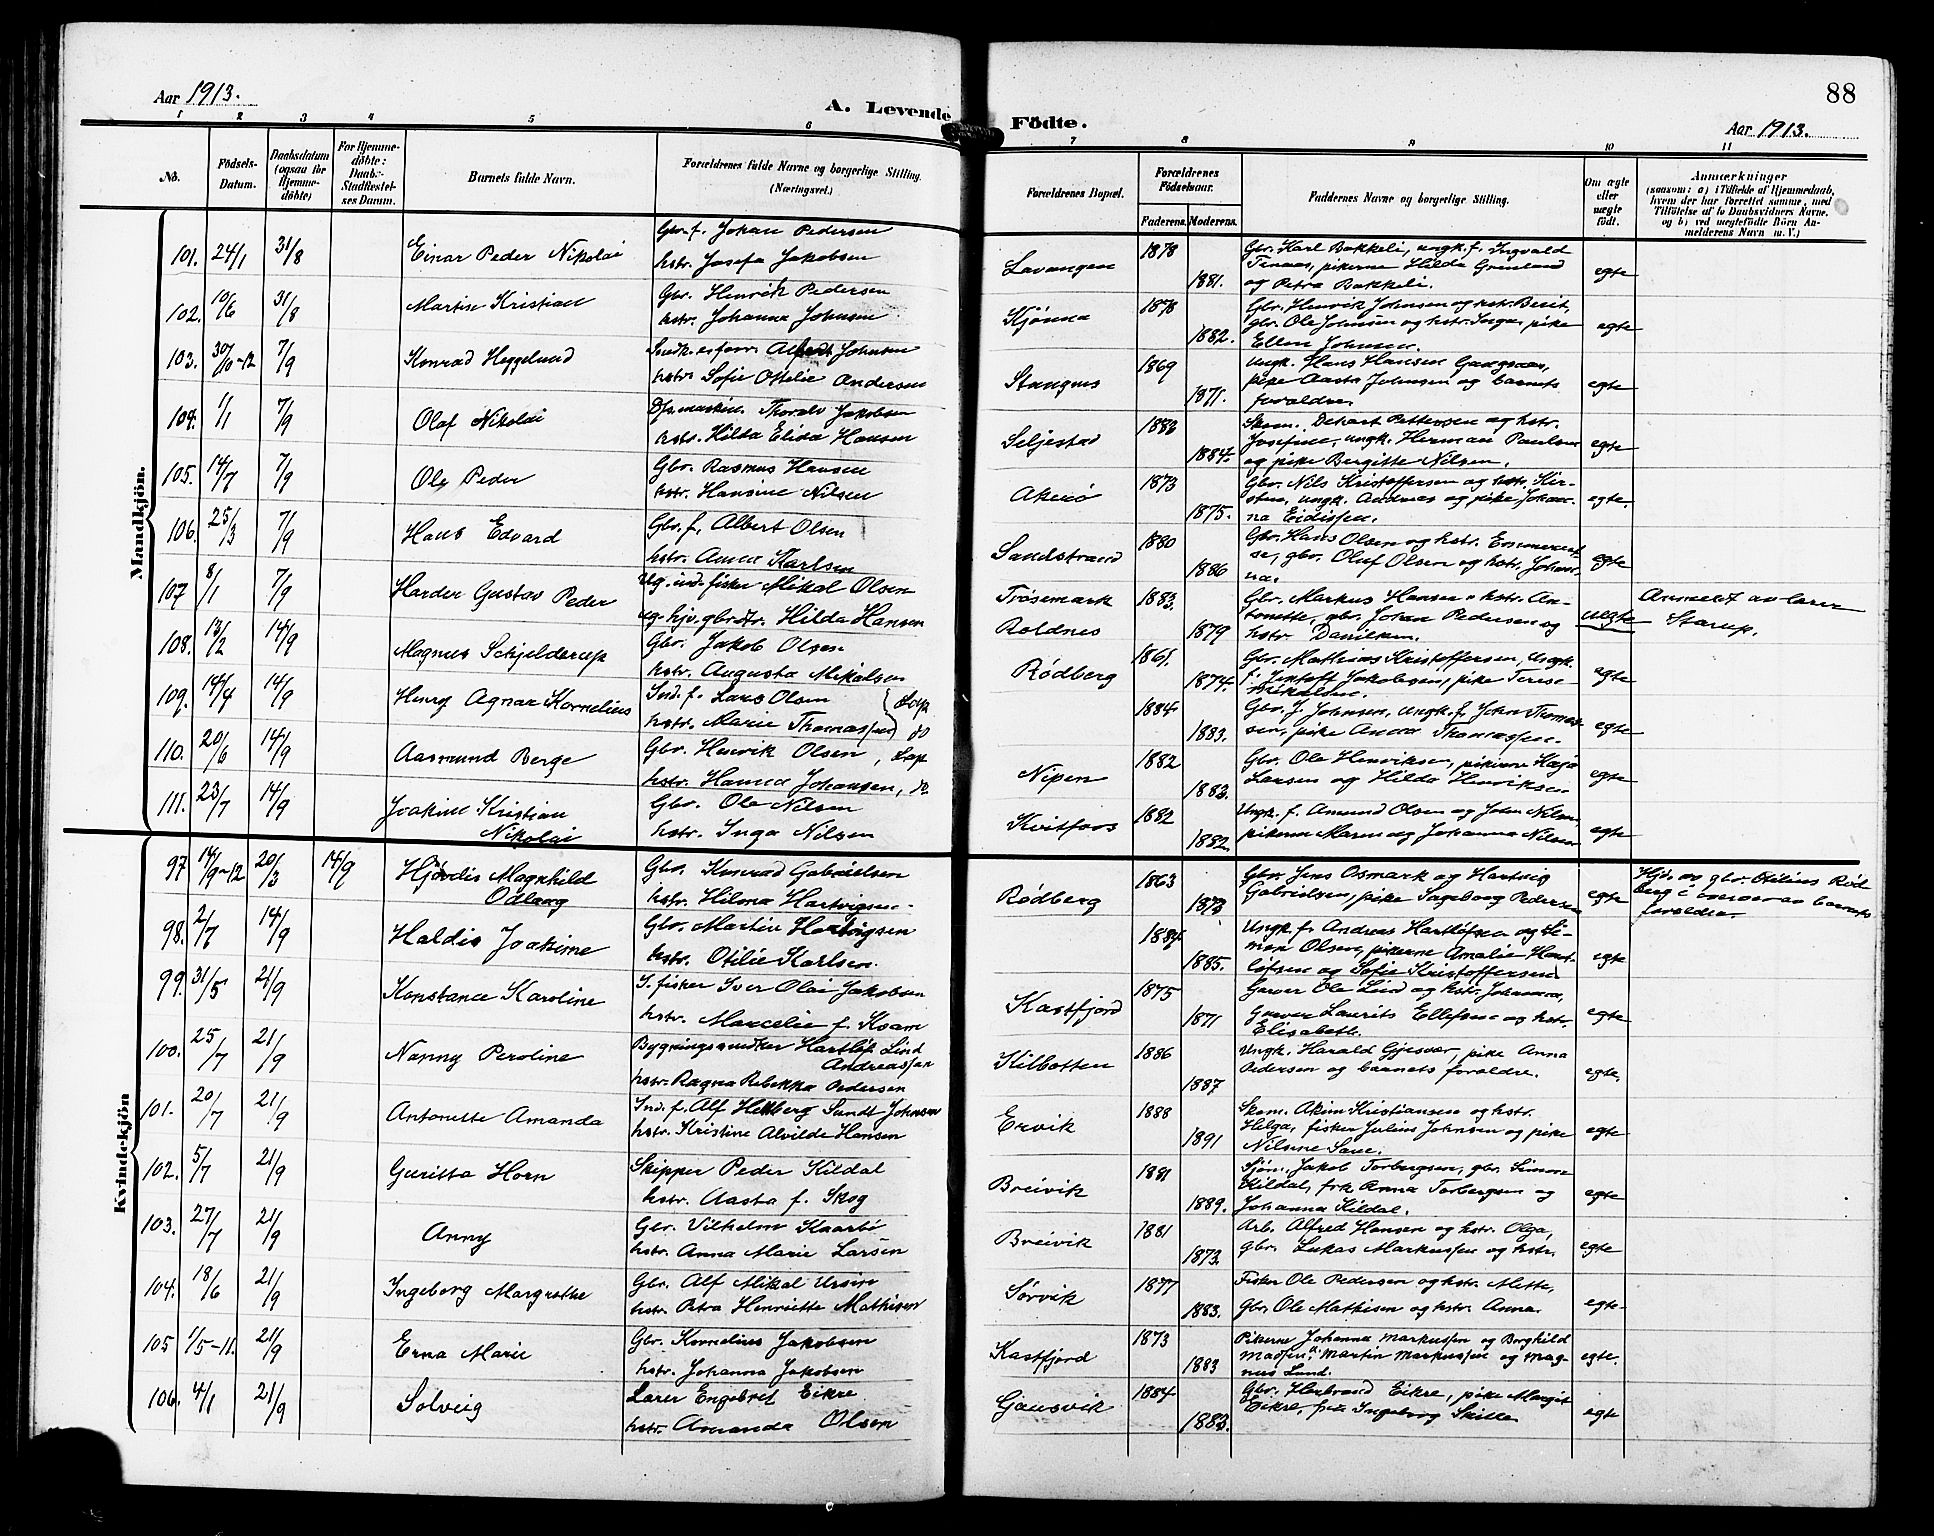 Aar 1913.
A. Levende Födte.
88
Aar 1913.
1 2 3 4 5 6 7 8 9 10 11
No.
Födsels-Datum.
Daabsdatum (ogsaa för Hjemme-döbte)
For Hjemme-döbte: Daabs-Stadfæstel-ses Datum.
Barnets fulde Navn.
Forældrenes fulde Navne og borgerlige Stilling. (Næringsvei.)
Forældrenes Bopæl.
Forældrenes Födselsaar.
Faderens. Moderens.
Faddernes Navne og borgerlige Stilling.
Om ægte eller uægte födt.
Anmærkninger
(saasom: a) i Tilfælde af Hjemmedaab, hvem der har forrettet samme, med Tilföielse af to Daabsvidners Navne, og b) ved uægtefödte Börn Anmelderens Navn m. V.)
Mandkjön.
101. 24/1 31/8 Einar Peder Nikolai Gbr. f. Johan Pedersen
hstr. Josefa Jakobsen
Lavangen 1878 1881. Gbr. Karl Bakkeli, ungk. f. Ingvald
Tenaas, pikerne Hilda Grønland
og Petra Bakkeli. egte
102. 10/6 31/8 Martin Kristian Gbr. Henrik Pedersen
hstr. Johanna Johnsen
Kjønna 1878 1882. Gbr. Henrik Johnsen og hstr. Berit,
gbr. Ole Johnsen og hstr. Inga, pike
Ellen Johnsen. egte
103. 30/10-12 7/9 Konrad Heggelund Snedk. Johnsen
hstr. Sofie Otelie Andersen
Stangnes 1869 1871. Ungk. Hans Hansen Gangsaas,
pike Aasta Johnsen og barnets
foraldre. egte
104. 1/1 7/9 Olaf Nikolai Thoralv Jakobsen
hstr. Hilda Elisa Hansen
Seljestad 1883 1884. Skom. Pettersen og hstr.
Josefine, ungk. Herman Paulsen
og pike Bergitte Nilsen. egte
105. 14/7 7/9 Ole Peder Gbr. Rasmus Hansen
hstr. Hansine Nilsen
Akerø 1873 1875. Gbr. Nils Kristoffersen og hstr. Kir-
stine, ungk. Andreas og pike Johan-
na Eidissen. egte.
106. 25/3 7/9 Hans Edvard Gbr. f. Albert Olsen
hstr. Anna Karlsen
Sandstrand 1880 1886 Gbr. Hans Olsen og hstr.
gbr. Oluf Olsen og hstr. Johan-
na. egte
107 8/1 7/9 Harder Gustav Peder Ug. ind. fisker Mikal Olsen
ug. hjv. gbr.dtr. Hilda Hansen
Trøsemark
Roldnes 1883. 1879 Gbr. Markus Hansen o hstr. An-
tonette, gbr. Johan Pedersen og
hstr. uegte Anmeldt av lærer
Starup.
108. 13/2 14/9 Magnus Schjelderup Gbr. Jakob Olsen
hstr. Augusta Mikalsen
Rødberg 1861. 1874. Gbr. Mathias Kristoffersen, ungk.
f. Jentoft Jakobsen, pike Terese
Mikalsen. egte
109. 14/4 14/9 Henry Agnar Kornelius Ind. f. Lars Olsen } Lap
hstr. Marie Thomassen do
1884 1883. Gbr. J. Johnsen, ungk. f. John Thomas-
sen, pike Anna Thomassen. egte
110. 20/6 14/9 Aasmund Berge Gbr. Henrik Olsen, Lap
hstr. Hanna Johansen, do
Nipen 1882 1883. Gbr. Ole Henriksen, pikerne Kaja
Larsen og Hilda Henriksen. egte
111. 23/7 14/9 Joakim Kristian
Nikolai Gbr. Ole Nilsen
hstr. Inga Nilsen
Kvitfors 1882 1882. Ungk. f. Amund Olsen og John Nilsen,
pikerne Maren og Johanna Nilsen egte
Kvindekjön
97 14/9-12 20/3 14/9 Hjørdis Magnhild
Odlaug Gbr. Konrad Gabrielsen
hstr. Hilma Hartvigsen.
Rødberg 1863 1873 Gbr. Jens Osmark og Hartvig
Gabrielsen, pike Ingeborg Pedersen egte Hjd. av gbr. Otilius Rød
berg i overvær av barnets
foraldre.
98. 2/7 14/9 Haldis Joakime Gbr. Martin Hartvigsen
hstr. Otilie Karlsen.
1884 1885. Ungk. f. Andreas Hartløfsen og Si-
mon Olsen, pikerne Amalie Hart-
løfsen og Sofie Kristoffersen egte
99. 31/5 21/9 Konstance Karoline S. fisker Iver Olai Jakobsen
hstr. Marcelie f. Kvam
Kastfjord 1875 1871 Garver Ole Lind og hstr. Johanna,
Garver Laurits Ellefsen og hstr.
Elisabeth. egte
100. 25/7 21/9 Nanny Peroline Bygningssnedker Hartløf Lind
Andreassen
hstr. Ragna Rebekka Pedersen
Kilbotten 1886 1887 Ungk. Harald Gjesvær, pike Anna
Pedersen og barnets foraldre. egte.
101. 20/7 21/9 Antonette Amanda Ind. f. Alf Helberg Sandt Johnsen
hstr. Kristine Alvilde Hansen
Ervik 1888 1891 Skom. Akim Kristiansen og hstr.
Helga, fisker Julius Johnsen og pike
Nilsine egte
102. 5/7 21/9 Guritta Horn Skipper Peder Kildal
hstr. Aasta f. Skog
Breivik 1881 1889. Sjøm. Jakob Torbergsen, gbr. Simon
Kildal, frk Anna Torbergsen og
Johanna Kildal. egte
103. 27/7 21/9 Anny Gbr. Vilhelm Kaarbø
hstr. Anna Marie Larsen
Breivik 1881 1873. Arb. Alfred Hansen og hstr. Olga,
gbr. Lukas Markussen og hstr. egte
104. 18/6 21/9 Ingeborg Margrethe Gbr. Alf Mikal Ursin
hstr. Petra Henriette Mathisen
Sørvik 1877 1883. Fisker Ole Pedersen og hstr. Mette,
Gbr. Ole Mathisen og hstr. Anna. egte
105 1/5-11. 21/9 Erna Marie Gbr. Kornelius Jakobsen
hstr. Johanna Jakobsen
Kastfjord 1873 1883 Pikerne Johanna Markussen og Borghild
Madsen, Martin Markussen og Mag-
nus Lund. egte.
106. 4/1 21/9 Solveig Lærer Engebret Eikre
hstr. Amanda Olsen
Gausvik 1884 1883. Gbr. Herbrand Eikre, pike Margit
Eikre, frk Ingeborg egte